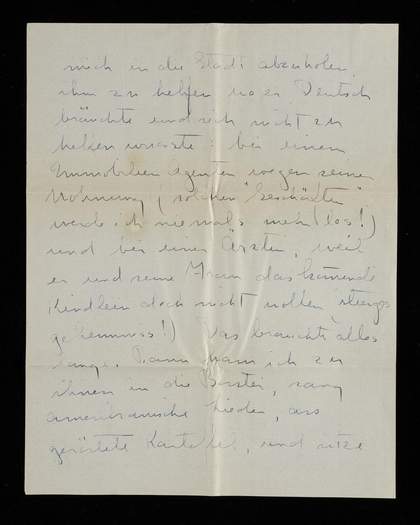 mich in die Stadt abzuholen,
ihm zu helfen wo er Deutsch
bräuchte und sich nicht zu
helfen wusste: bei einem
Immobilien Agenten wegen seiner
Wohnung (solchen "Geschäften"
werde ich niemals mehr los!)
und bei einer Ärztin, weil
er und seine Frau das kommende
Kindlein doch nicht wollen
!) Das brauchte alles
lange. Dann kam ich zu
ihnen in die, sang
amerikanische Lieder, ass
geröstete Kartoffel, und sitze